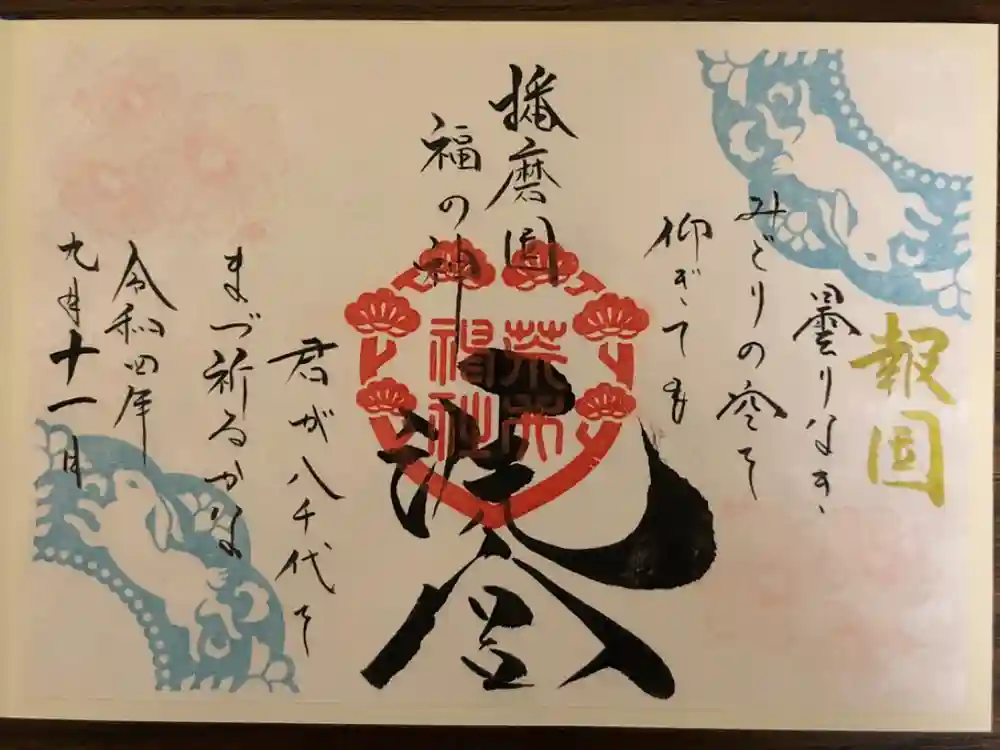 報国
曇りなき
みどりの空を
仰ぎても
播磨国
福の神
荒井
神社
君が八千代を
まづ祈るかな
令和四年
九月十一日